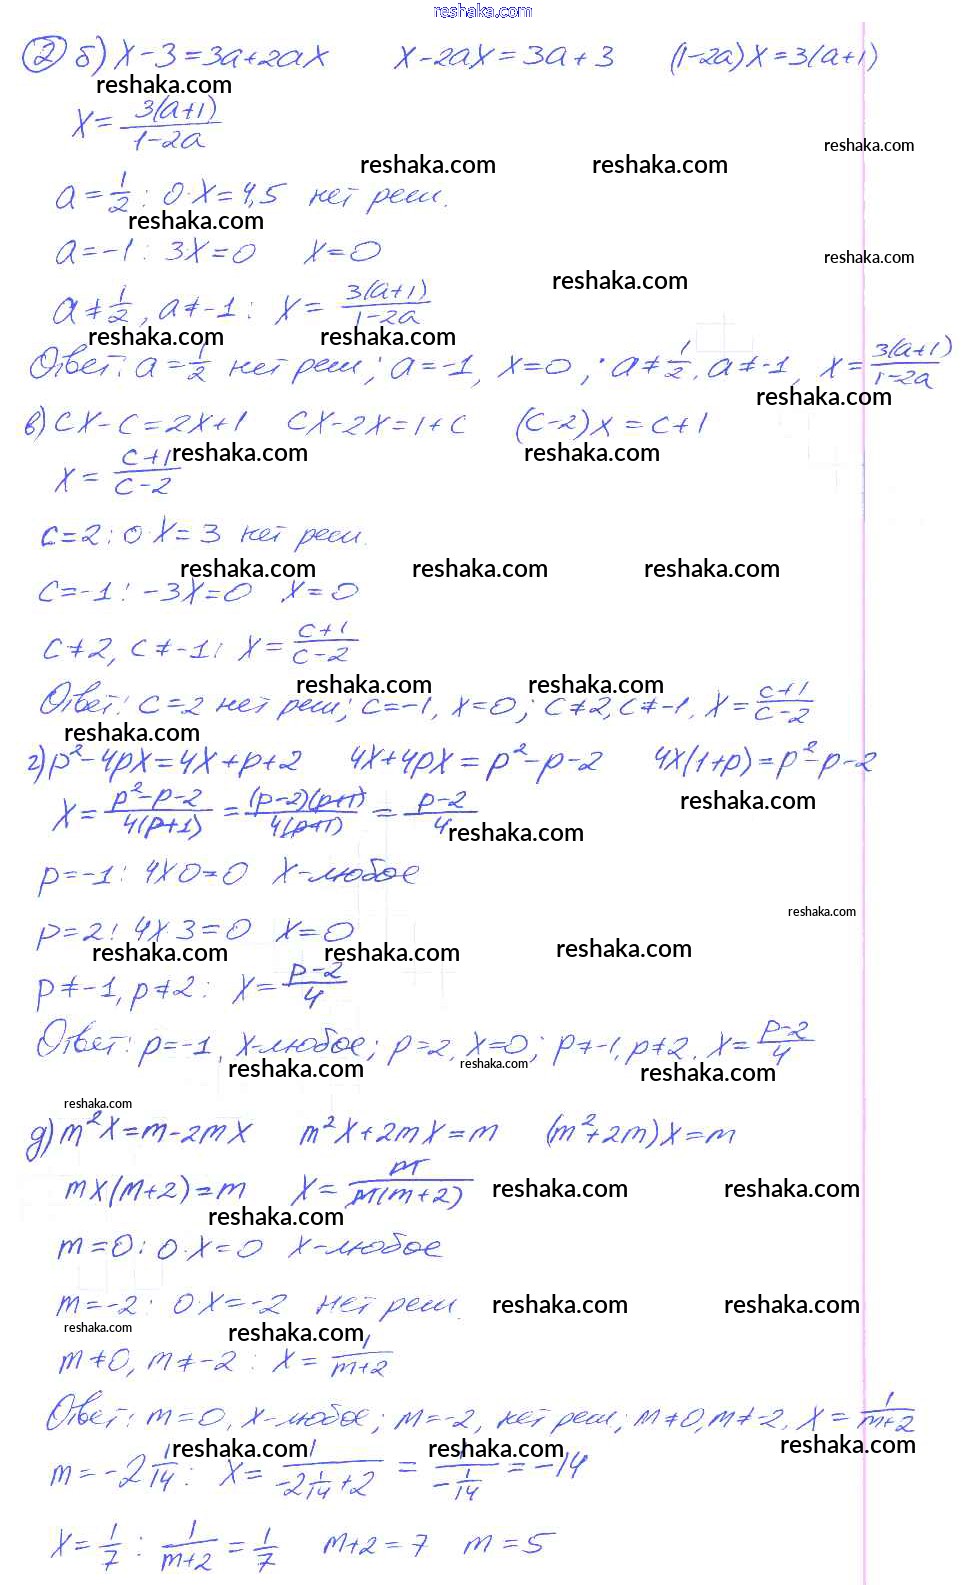 reshaka.com
② б) x-3=3a+2ax x-2ax=3a+3 (1-2a)x=3(a+1)
reshaka.com
x= 3(a+1)/1-2a
reshaka.com
reshaka.com reshaka.com
a=1/2: 0·x=4,5 нет реш.
reshaka.com
a=-1: 3x=0 x=0
reshaka.com
reshaka.com
a≠1/2, a≠-1: x= 3(a+1)/1-2a
reshaka.com reshaka.com
Ответ: a=1/2 нет реш; a=-1, x=0; a≠1/2, a≠-1, x= 3(a+1)/1-2a
reshaka.com
в) cx-c=2x+1 cx-2x=1+c (c-2)x=c+1
reshaka.com reshaka.com
x= c+1/c-2
c=2: 0·x=3 нет реш.
reshaka.com reshaka.com reshaka.com
c=-1: -3x=0 x=0
c≠2, c≠-1: x= c+1/c-2
reshaka.com reshaka.com
Ответ: c=2 нет реш; c=-1, x=0; c≠2, c≠-1, x= c+1/c-2
reshaka.com
г) p²-4px=4x+p+2 4x+4px=p²-p-2 4x(1+p)=p²-p-2
reshaka.com
x= p²-p-2/4(p+1) = (p-2)(p+1)/4(p+1) = p-2/4
reshaka.com
p=-1: 4x·0=0 x-любое
reshaka.com
p=2: 4x·3=0 x=0
reshaka.com reshaka.com reshaka.com
p≠-1, p≠2: x= p-2/4
Ответ: p=-1, x-любое; p=2, x=0; p≠-1, p≠2, x= p-2/4
reshaka.com reshaka.com reshaka.com
reshaka.com
д) m²x=m-2mx m²x+2mx=m (m²+2m)x=m
mx(m+2)=m x= m/m(m+2)
reshaka.com reshaka.com
reshaka.com
m=0: 0·x=0 x-любое
m=-2: 0·x=-2 нет реш.
reshaka.com reshaka.com
reshaka.com reshaka.com
m≠0, m≠-2: x= 1/m+2
Ответ: m=0, x-любое; m=-2, нет реш; m≠0, m≠-2, x= 1/m+2
reshaka.com reshaka.com reshaka.com
m=-2 1/14: x= 1/-2 1/14+2 = 1/-1/14 = -14
x=1/7: 1/m+2 = 1/7 m+2=7 m=5